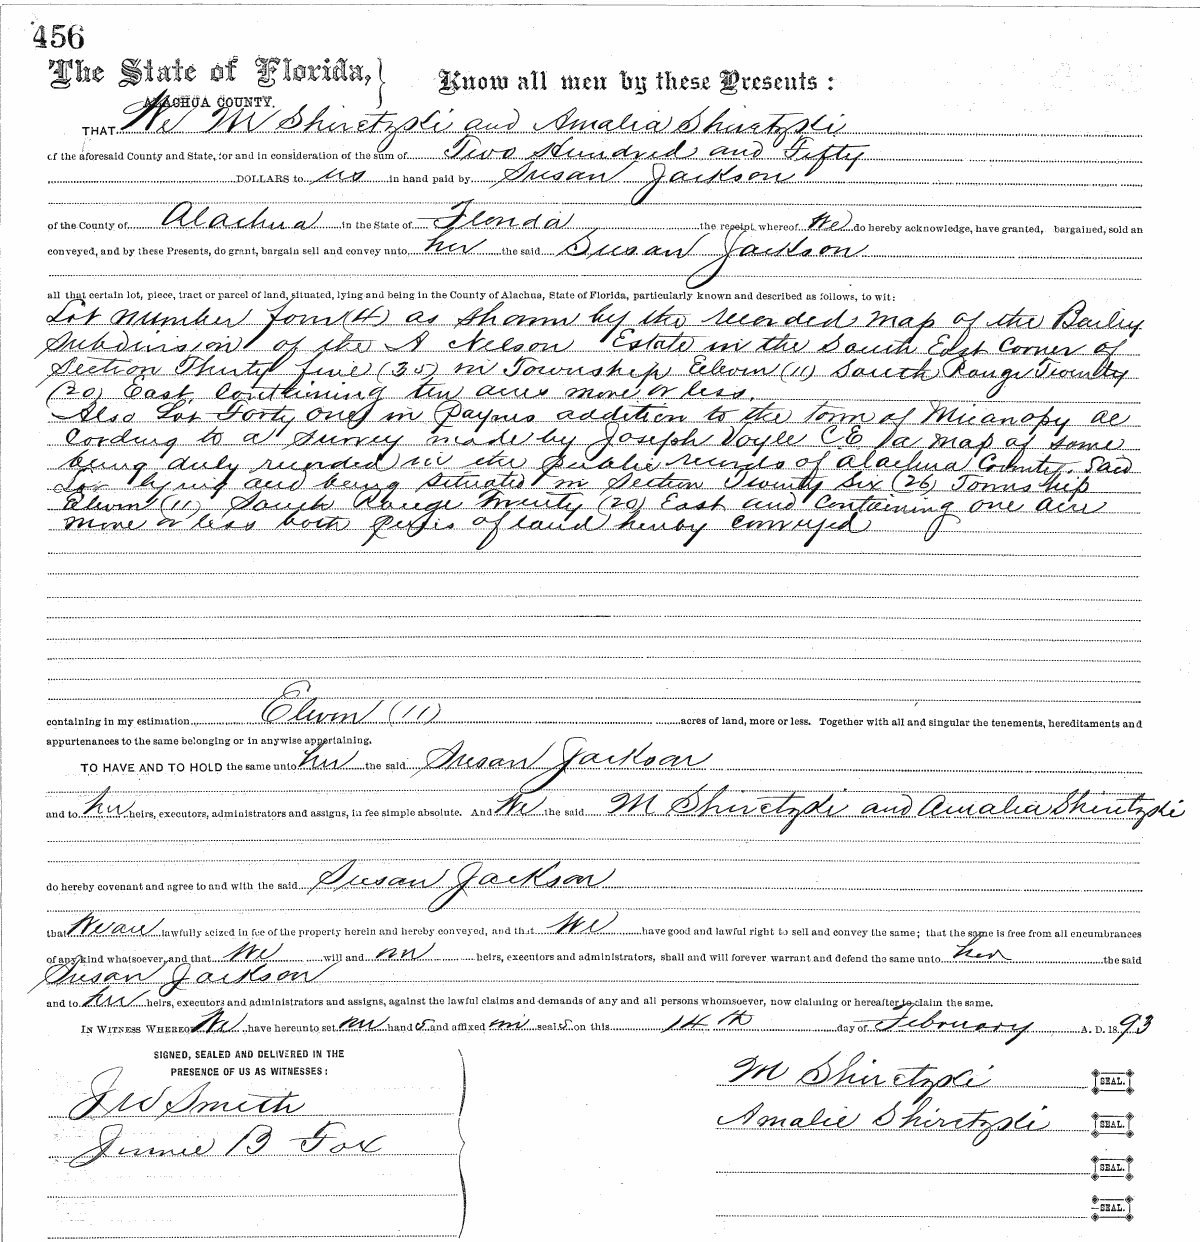 456
The State of Florida,
ALACHUA COUNTY.
Know all men by these Presents:
THAT We M Shiretzski and Amalia Shiretzski
of the aforesaid County and State, for and in consideration of the sum of Two Hundred and Fifty
DOLLARS to us in hand paid by Susan Jackson
of the County of Alachua in the State of Florida the receipt whereof We do hereby acknowledge, have granted, bargained, sold an
conveyed, and by these Presents, do grant, bargain sell and convey unto, her the said Susan Jackson
all that certain lot, piece, tract or parcel of land, situated, lying and being in the County of Alachua, State of Florida, particularly known and described as follows, to wit:
Lot number four (4) as shown by the recorded map of the Bailey
Subdivision of the A Nelson Estate in the South East Corner of
Section Thirty five (35) in Township Eleven (11) South Range Twenty
(20) East Containing ten acres more or less.
Also Lot Forty one in Paynes addition to the town of Micanopy ac
cording to a survey made by Joseph Voyle C E a map of same
being duly recorded in the public records of Alachua County. Said
Lot lying and being situated in Section Twenty Six (26) Township
Eleven (11) South Range Twenty (20) East and Containing one acre
more or less both of land hereby Conveyed
containing in my estimation Eleven (11) acres of land, more or less. Together with all and singular the tenements, hereditaments and
appurtenances to the same belonging or in anywise appertaining.
TO HAVE AND TO HOLD the same unto her the said Susan Jackson
and to her heirs, executors, administrators and assigns, in fee simple absolute. And We the said M Shiretzski and Amalia Shiretzski
do hereby covenant and agree to and with the said Susan Jackson
that We are lawfully seized in fee of the property herein and hereby conveyed, and that We have good and lawful right to sell and convey the same; that the same is free from all encumbrances
of any kind whatsoever, and that We will and our heirs, executors and administrators, shall and will forever warrant and defend the same unto her the said
Susan Jackson
and to her heirs, executors and administrators and assigns, against the lawful claims and demands of any and all persons whomsoever, now claiming or hereafter to claim the same.
IN WITNESS WHEREOF We have hereunto set our hands and affixed our seals on this 14th day of February A. D. 1893
SIGNED, SEALED AND DELIVERED IN THE
PRESENCE OF US AS WITNESSES:
J W Smith
Jennie B Fox
M Shiretzski SEAL.
Amalie Shiretzski SEAL.
SEAL.
SEAL.